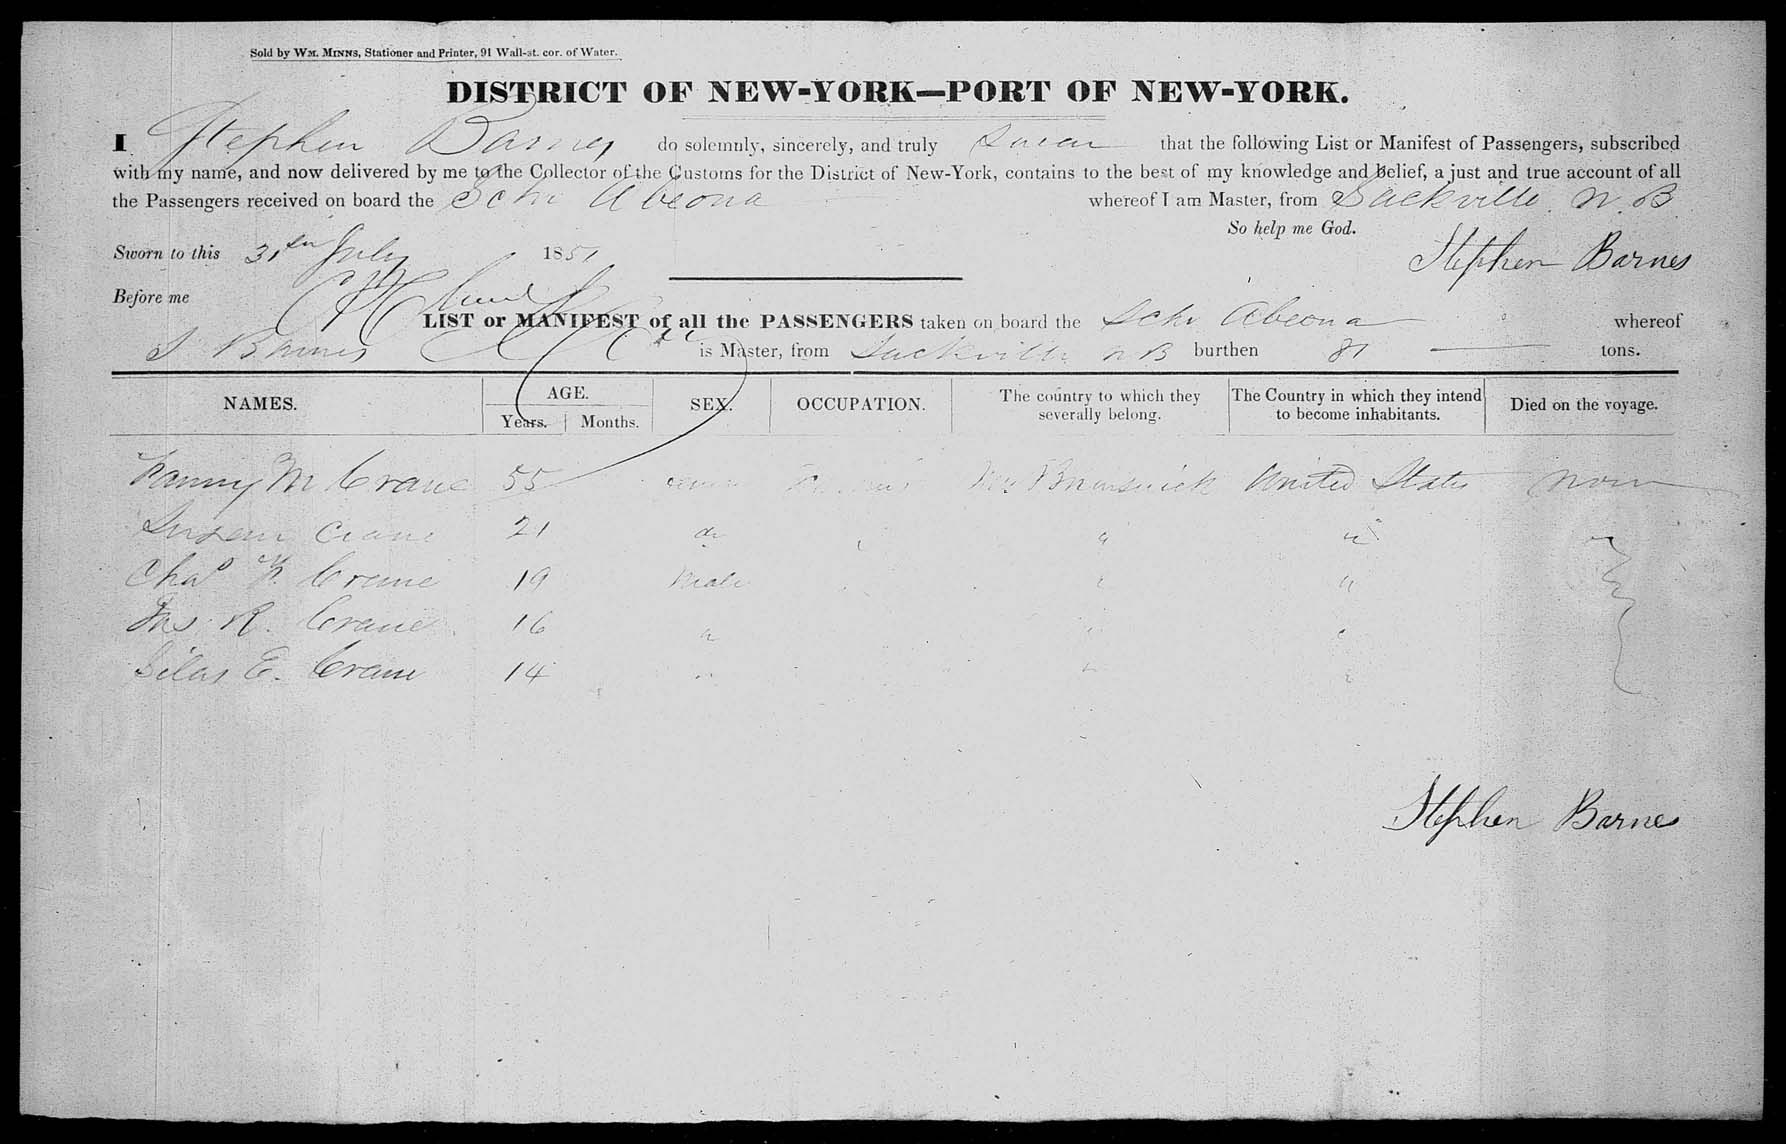 Sold by WM. MINNS, Stationer and Printer, 91 Wall-st. cor. of Water.
DISTRICT OF NEW-YORK—PORT OF NEW-YORK.
I Stephen Barnes do solemnly, sincerely, and truly Swear that the following List or Manifest of Passengers, subscribed
with my name, and now delivered by me to the Collector of the Customs for the District of New-York, contains to the best of my knowledge and belief, a just and true account of all
the Passengers received on board the Schr Abeona whereof I am Master, from Sackville N. B.
So help me God.
Sworn to this 31st July 1851
Stephen Barnes
Before me
LIST or MANIFEST of all the PASSENGERS taken on board the Schr Abeona whereof
S Barnes is Master, from Sackville N B burthen 81 tons.
NAMES. AGE. Years. Months. SEX. OCCUPATION. The country to which they severally belong. The Country in which they intend to become inhabitants. Died on the voyage.
Fanny M Crane 55 New Brunswick United States None
Susan Crane 21 do " "
Chas F. Crane 19 Male " "
Jas R. Crane 16 " " "
Silas E. Crane 14 " " "
Stephen Barnes